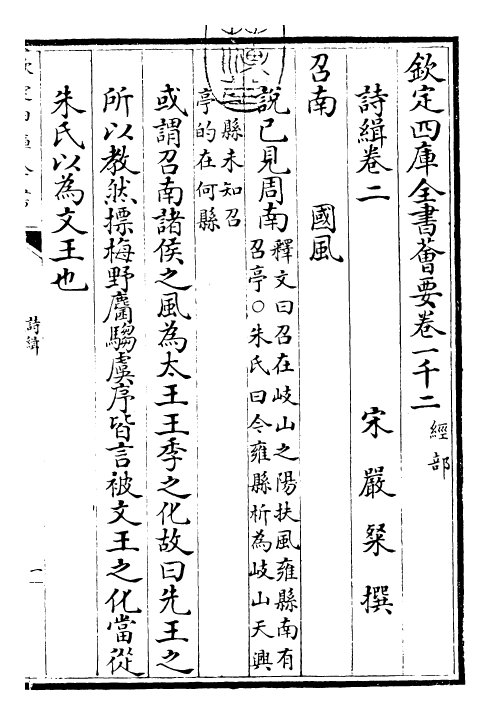 欽定四庫全書薈要卷一千二 經部
詩緝卷二
宋 嚴粲 撰
召南 國風
說已見周南
釋文曰召在岐山之陽扶風雍縣南有
召亭○朱氏曰今雍縣析為岐山天興
二縣未知召
亭的在何縣
或謂召南諸侯之風為太王王季之化故曰先王之
所以教然摽梅野麕騶虞序皆言被文王之化當從
朱氏以為文王也
詩緝
一